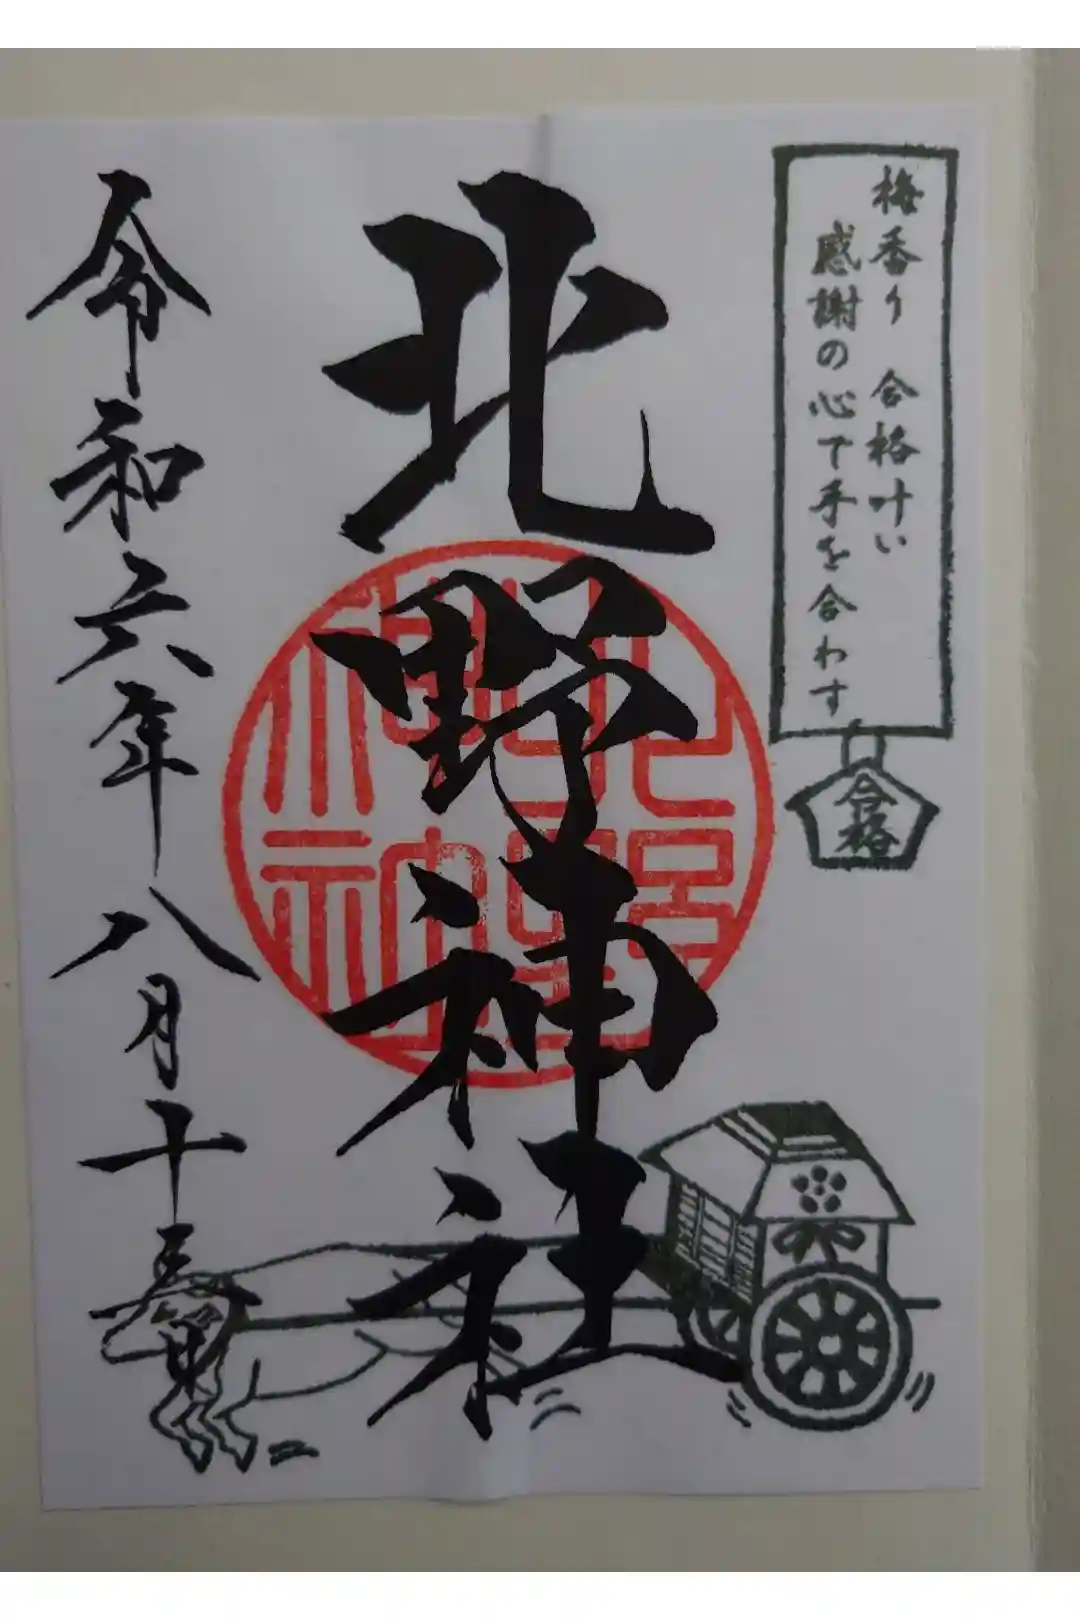 梅香り 合格叶い
感謝の心で手を合わす
合格
北野神社
令和六年八月十五日